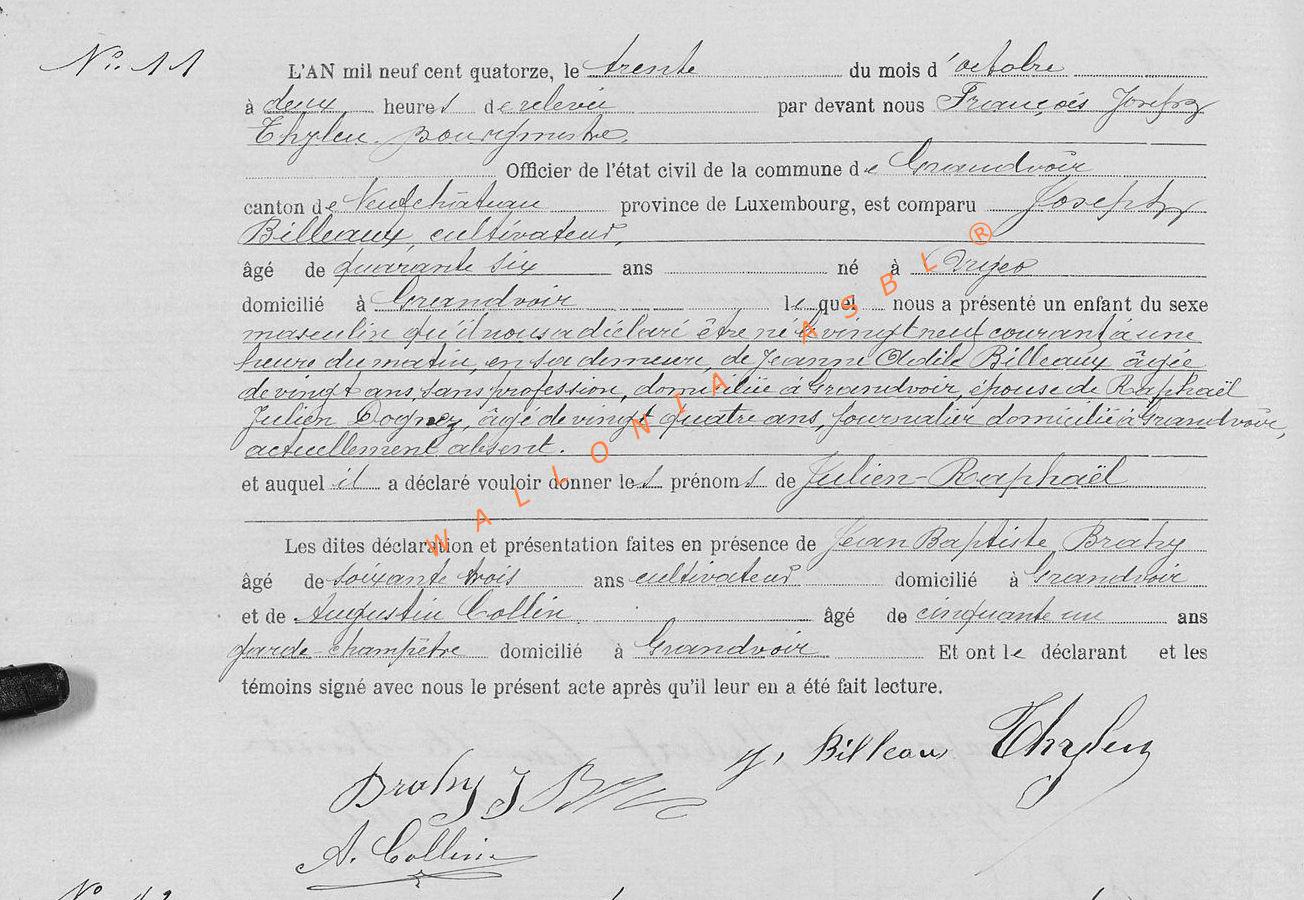 N° 11
L'AN mil neuf cent quatorze, le trente du mois d'octobre
à deux heures de relevée par devant nous François Joseph
Thylen Bourgmestre.
Officier de l'état civil de la commune de Grandvoir
canton de Neufchâteau province de Luxembourg, est comparu Joseph
Billeaux, cultivateur,
âgé de quarante six ans né à Orgeo
domicilié à Grandvoir lequel nous a présenté un enfant du sexe
masculin qu'il nous a déclaré être né le vingt neuf courant à une
heure du matin, en sa demeure, de Jeanne Odile Billeaux âgée
de vingt ans, sans profession, domiciliée à Grandvoir, épouse de Raphaël
Julien Dogney, âgé de vingt quatre ans, journalier domicilié à Grandvoir,
actuellement absent.
et auquel il a déclaré vouloir donner les prénoms de Julien-Raphaël
Les dites déclaration et présentation faites en présence de Jean Baptiste Brahy
âgé de soixante trois ans cultivateur domicilié à Grandvoir
et de Augustin Collin âgé de cinquante un ans
garde-champêtre domicilié à Grandvoir Et ont le déclarant et les
témoins signé avec nous le présent acte après qu'il leur en a été fait lecture.
J, Billeau Thylen
Brahy J B
A. Collin
WALLONIA ASBL ®